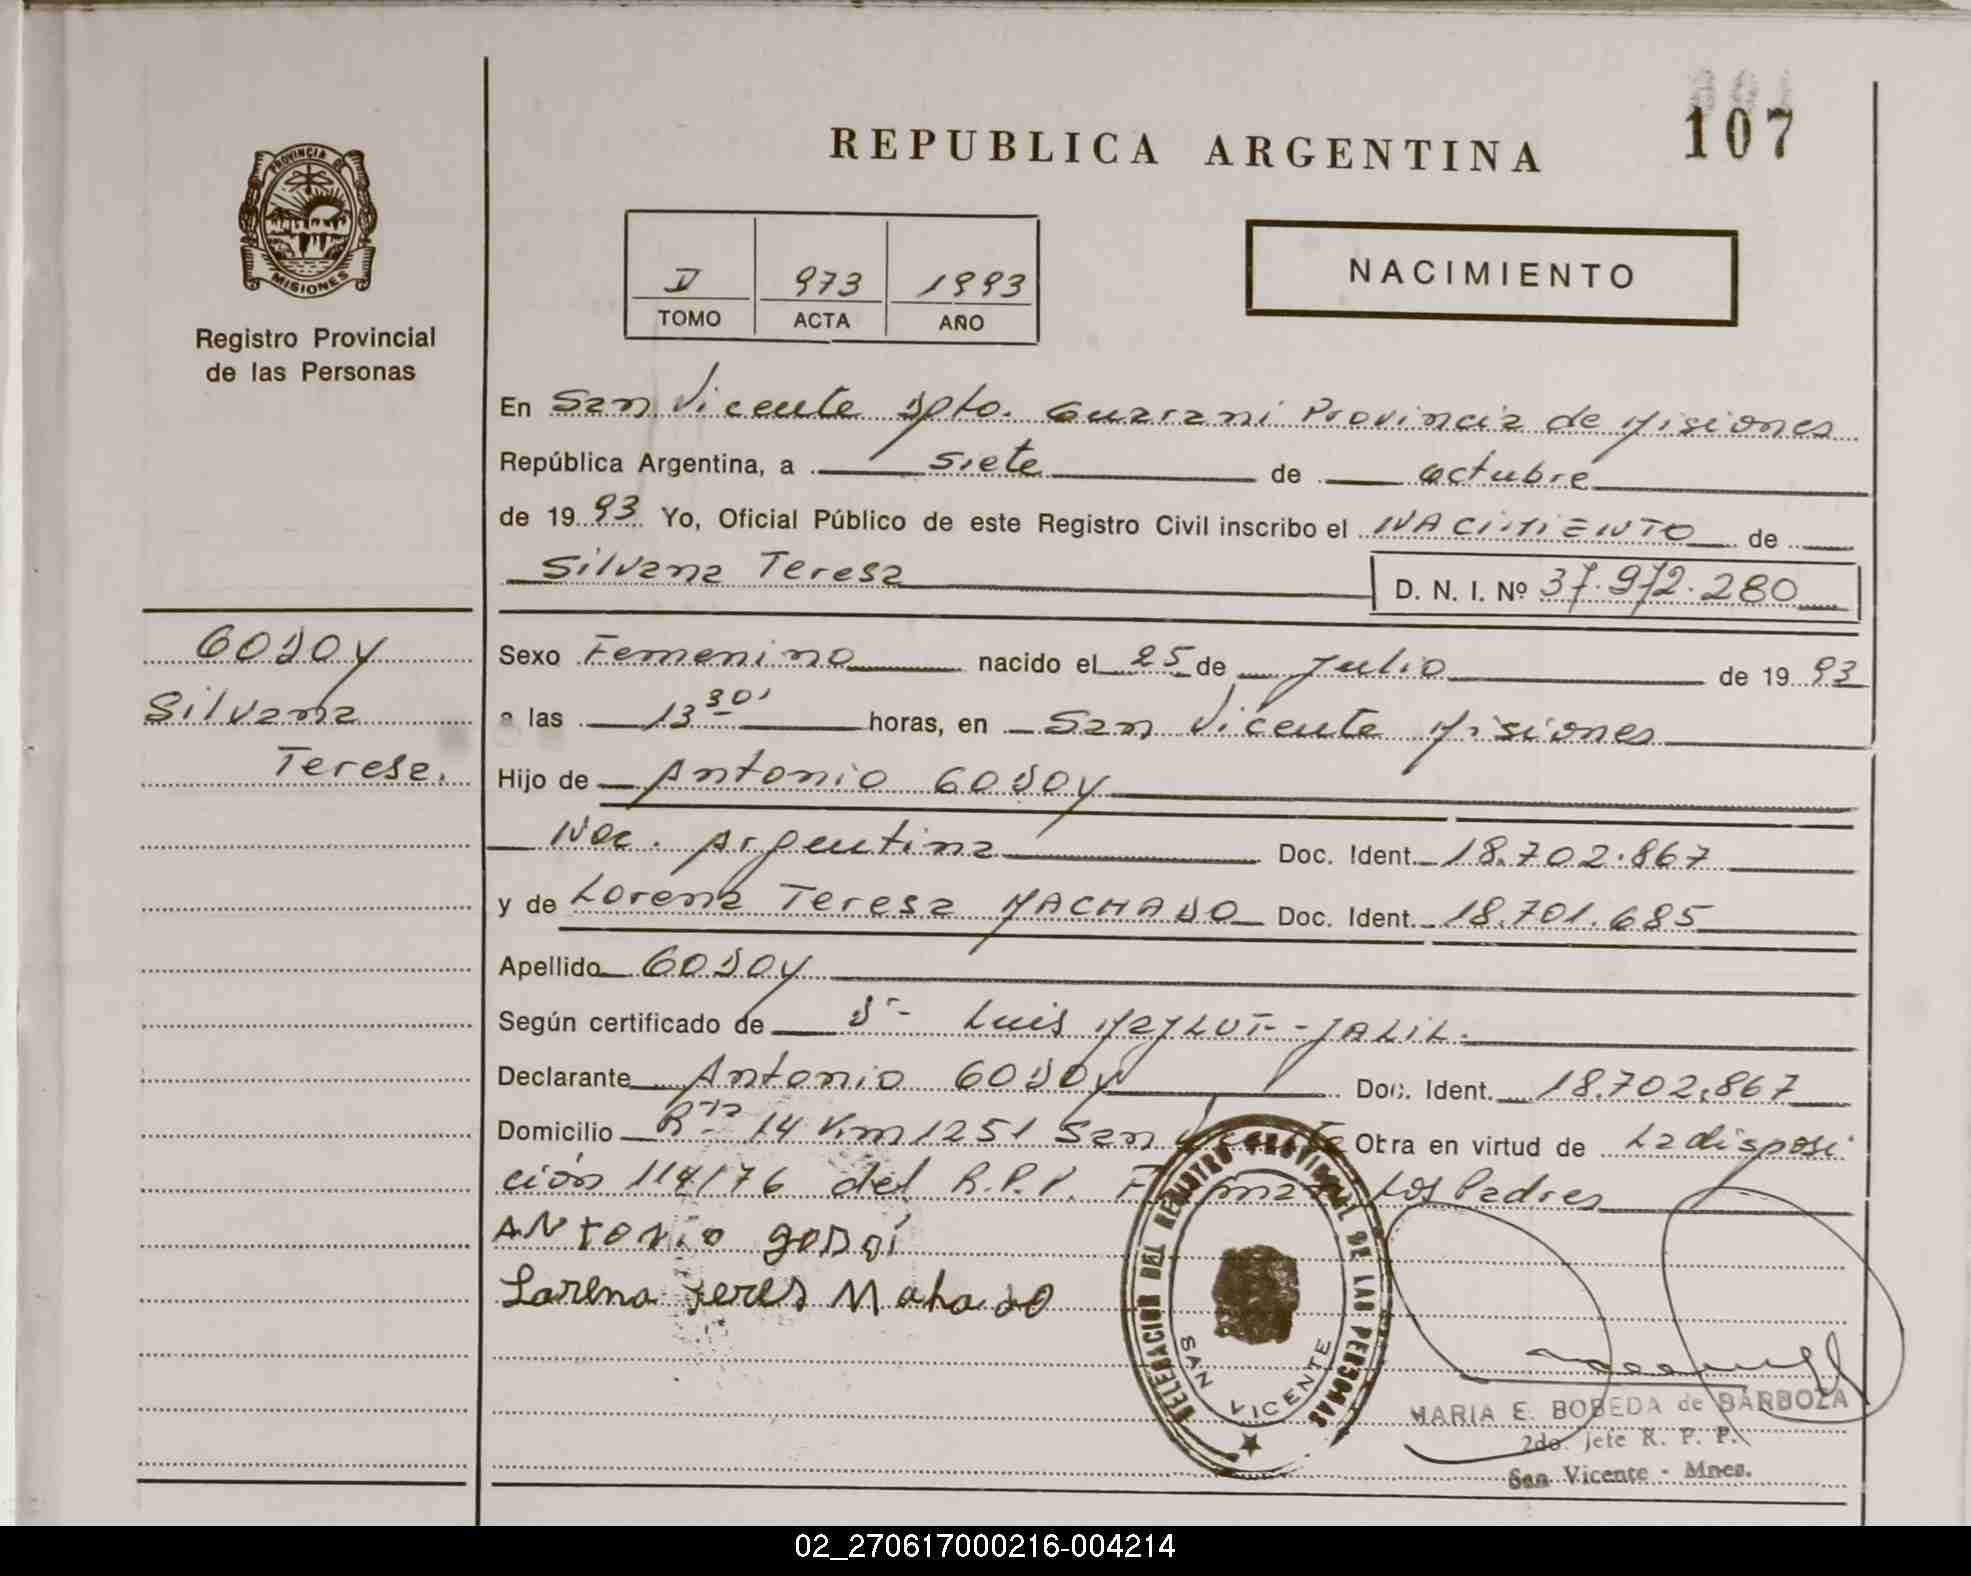 107
REPUBLICA ARGENTINA
PROVINCIA DE
MISIONES
Registro Provincial
de las Personas
D 973 1993
TOMO ACTA AÑO
NACIMIENTO
En San Vicente Dpto. Guarani Provincia de Misiones
República Argentina, a siete de octubre
de 1993 Yo, Oficial Público de este Registro Civil inscribo el NACIMIENTO de
Silvana Teresa D. N. I. Nº 37.972.280
GODOY
Silvana
Teresa.
Sexo Femenino nacido el 25 de Julio de 1993
a las 13 30' horas, en San Vicente Misiones
Hijo de Antonio GODOY
Nac. Argentina Doc. Ident. 18.702.867
y de Lorena Teresa MACHADO Doc. Ident. 18.701.685
Apellido GODOY
Según certificado de Luis JALIL.
Declarante Antonio GODOY Doc. Ident. 18.702.867
Domicilio Rta 14 Km 1251 San Vicente Obra en virtud de La disposi
ción 114/76 del R.P.P. Firman Los Padres
ANtonio goDoi
Lorena Teres Mahado
DELEGACION DEL REGISTRO PROVINCIAL DE LAS PERSONAS
SAN VICENTE
MARIA E. BOBEDA de BARBOZA
2do. Jefe R. P. P.
San Vicente - Mnes.
02_270617000216-004214